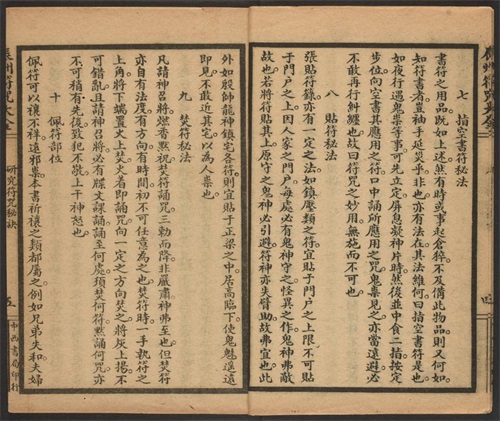 七　指空書符秘法
書符之用品。既如上述。然有時或事起倉猝。不及備此物品。則又何如。
知符書者。豈袖手延災乎。非也。亦有法在。其法維何。曰指空書符是也。
如夜行遇鬼祟等事。可先立定。屏息凝神片時。然後並中食二指。按定
步位。向空書其應用之符。口中誦所應用之咒。鬼祟見之。亦當遠避。必
不敢再行糾纏也。故曰符咒之妙用。無施而不可也。
八　貼符秘法
張貼符籙。亦有一定之法。如鎮壓類之符。宜貼于門戶之上限。不可貼
于門戶之上。因人家之門戶。每處必有鬼神守之。怪異之作。鬼神弗敵
故也。若將符貼其上。原守之鬼神必引避。符神亦失臂助。故弗宜也。此
外如殷師龍神鎮宅各符。則宜貼于正梁之中。居高臨下。使鬼魅遙遠
即見。不敢近其宅。以為人祟也。
九　焚符秘法
凡請神召將。燃香熱祝。焚符誦咒。三勅而降。非嚴肅神弗至也。但焚符
亦自有法度。有方向。有時間。初不可任意為之也。焚符時。一手執符之
上角。將下端置火上焚。火著即誦咒。向一定之方向焚之。將灰上揚。不
可錯亂。且請神召將。必有牒文。誦至何處須焚何符。誦何咒。亦
不可稍有先後。致犯不敬。上干神怒也。
十　佩符部位
佩符可以禳不祥。遠邪祟。本書祈禳之類都屬之。例如兄弟失和。夫婦
研究符咒秘訣
五
中西書局印行